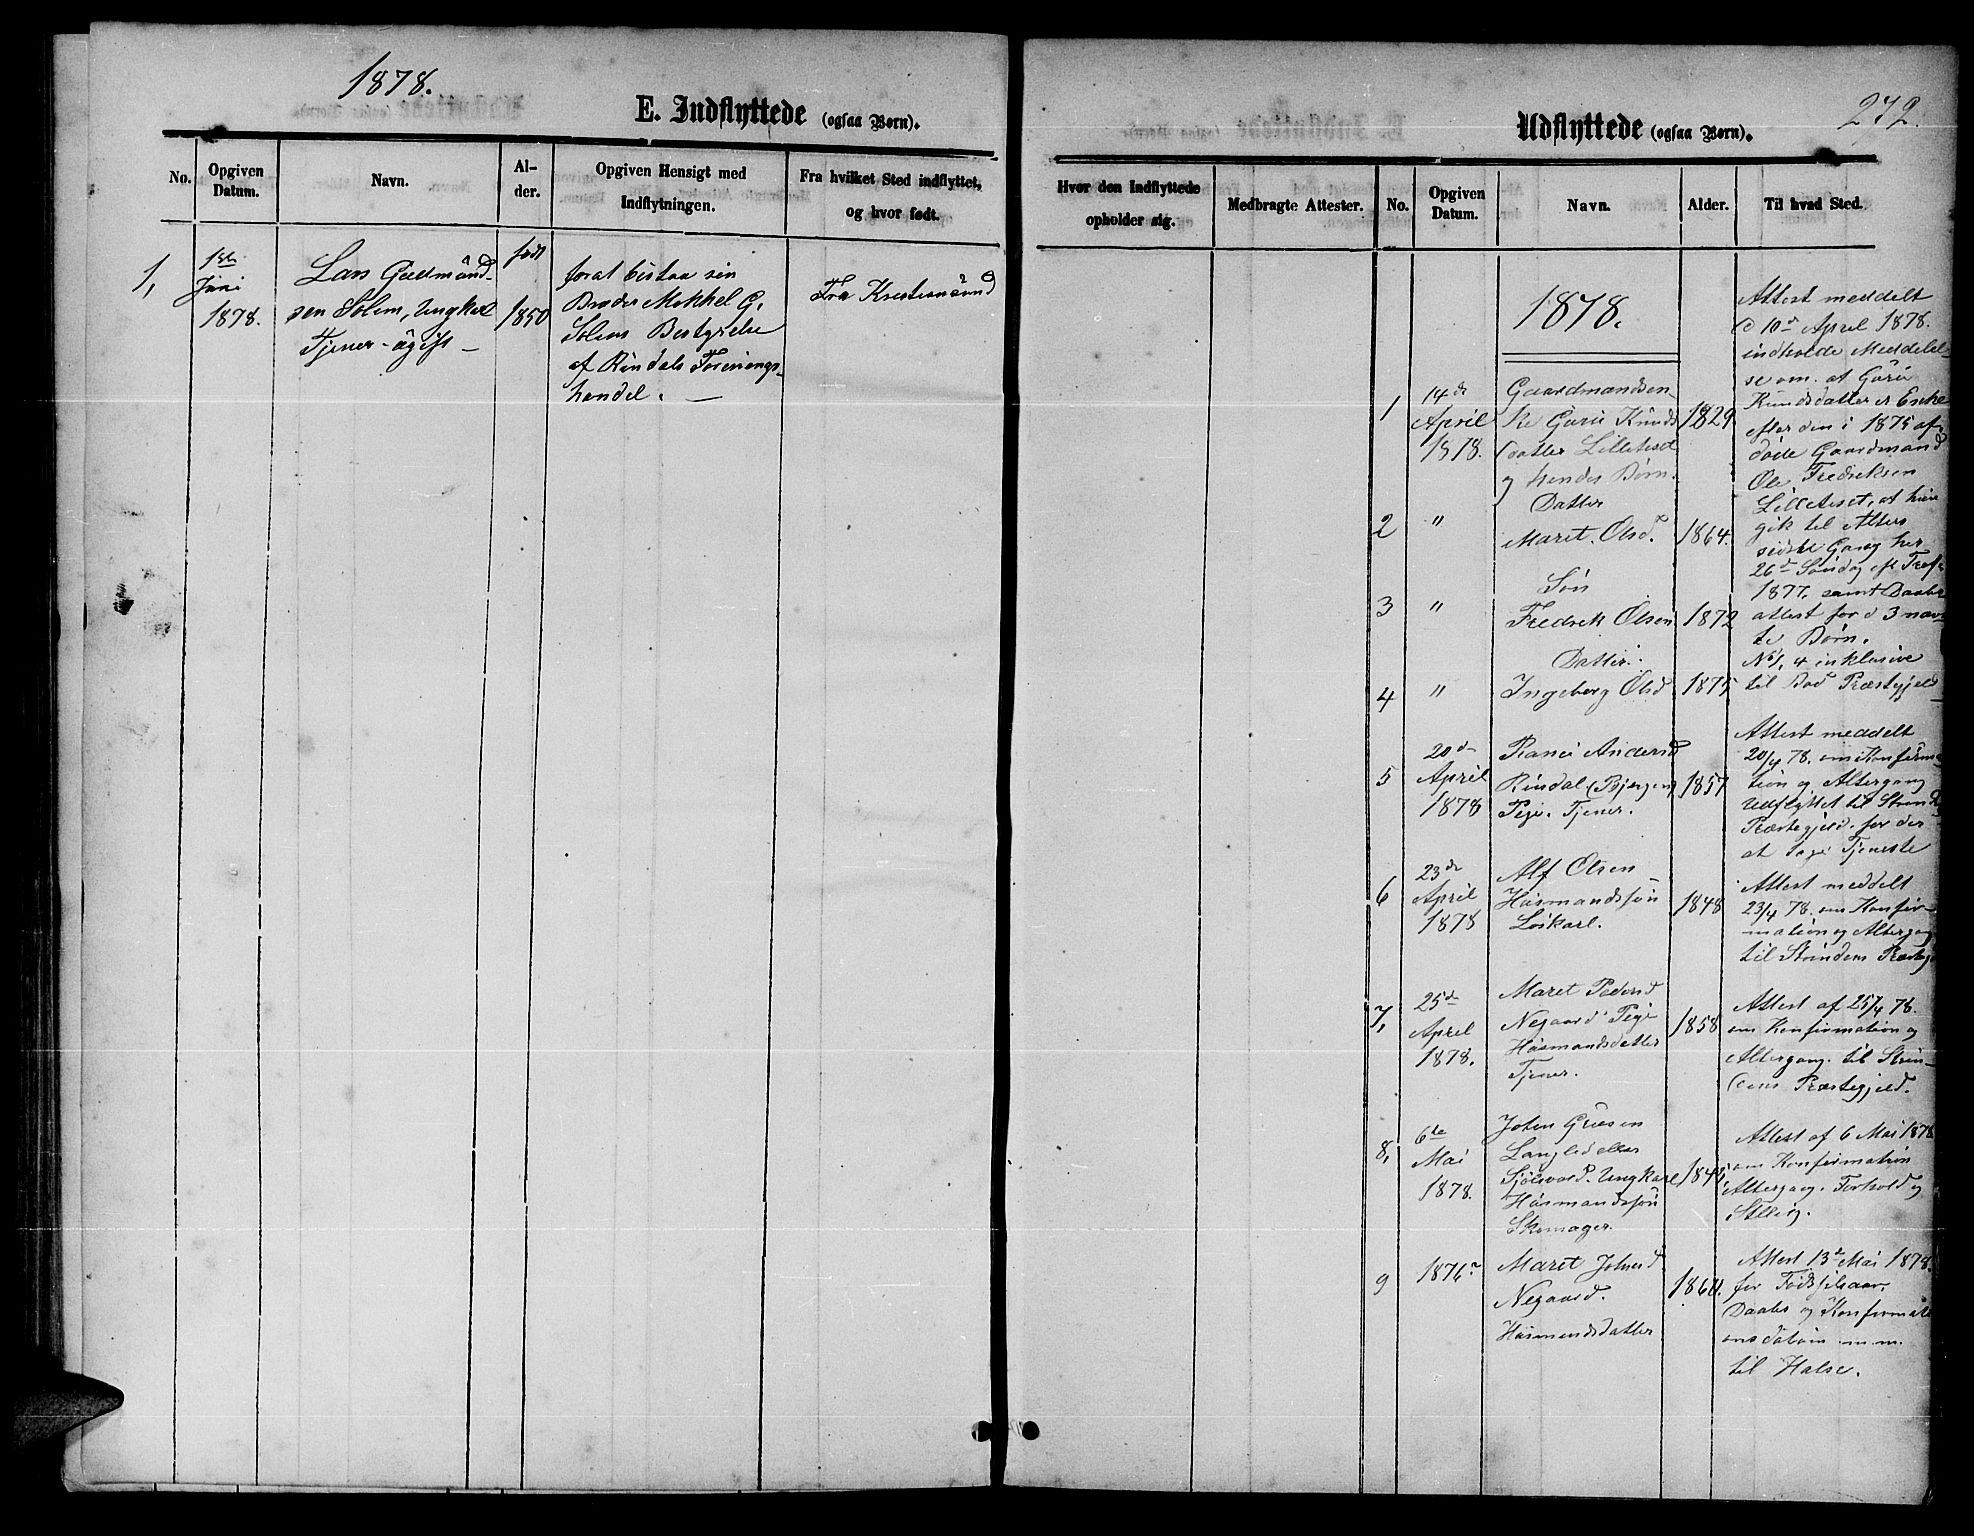 1878.
E. Indflyttede (ogsaa Børn).
No.
Opgiven Datum.
Navn.
Al-
der.
Opgiven Hensigt med
Indflytningen.
Fra hvilket Sted indflyttet,
og hvor født.
1,
1ste
Juni
1878.
Lars Gudmund-
sen Solem, Ungkarl
Tjener - ugift -
født
1850
forat bistaa sin
Broder Mekkel G.
Solems Bestyrelse
af Rindals Forenings-
handel. -
Fra Kristiansund
272.
Udflyttede (ogsaa Børn).
Hvor den Indflyttede
opholder sig.
Medbragte Attester.
No.
Opgiven
Datum.
Navn.
Alder.
Til hvad Sted.
1878.
1
14de
April
1878.
Gaardmandsen-
ke Guru Knuds
datter Lilleteset
og hendes Børn.
1829
Attest meddelt
d 10de April 1878.
indholde Meddelel-
se om. at Guru
Knudsdatter er Enke
efter den i 1875 af-
døde Gaardmand
Ole Fredriksen
Lilleteset, at hun
gik til Alters
sidste Gang her
26de Søndag eft Tref.
1877, samt Daabs
attest for d 3 næv-
te Børn.
No 1, 4 inklusive
til Bod Præstegjeld
2
"
Datter
Maret. Olsd.
1864.
3
"
Søn
Fredrik Olsen
1872
4
"
Datter.
Ingeborg Olsd.
1875
5
20de
April
1878
Ranei Andersd
Rindal (Bjørgen)
Pige. Tjener.
1857
Attest meddelt
20/4 78. om Konfirma-
tion og Altergang
Udflyttet til Strind
Præstegjeld. for der
at søge Tjeneste
6
23de
April
1878
Alf Olsen
Husmandssøn
Løskarl.
1848
Attest meddelt
23/4 78. om Konfir-
mation og Altergang
til Strindens Præstegj
7,
25de
April
1878.
Maret Pedersd
Negaard Pige
Husmandsdatter
Tjener.
1858
Attest af 25/4 78.
om Konfirmation og
Altergang. til Strin-
dens Præstegjeld.
8,
6te
Mai
1878.
John
Langli eller
Sjølsvold. Ungkarl
Husmandssøn
Skomager.
Attest af 6 Mai 1878
om Konfirmation
Altergang. Forhold og
Stilling.
9
1876?
Maret Johnsd.
Negaard.
Husmandsdatter
Attest 13de Mai 1878.
for Fødselsaar,
Daabs og Konfirmati
onsdatum m.m.
til Halse.